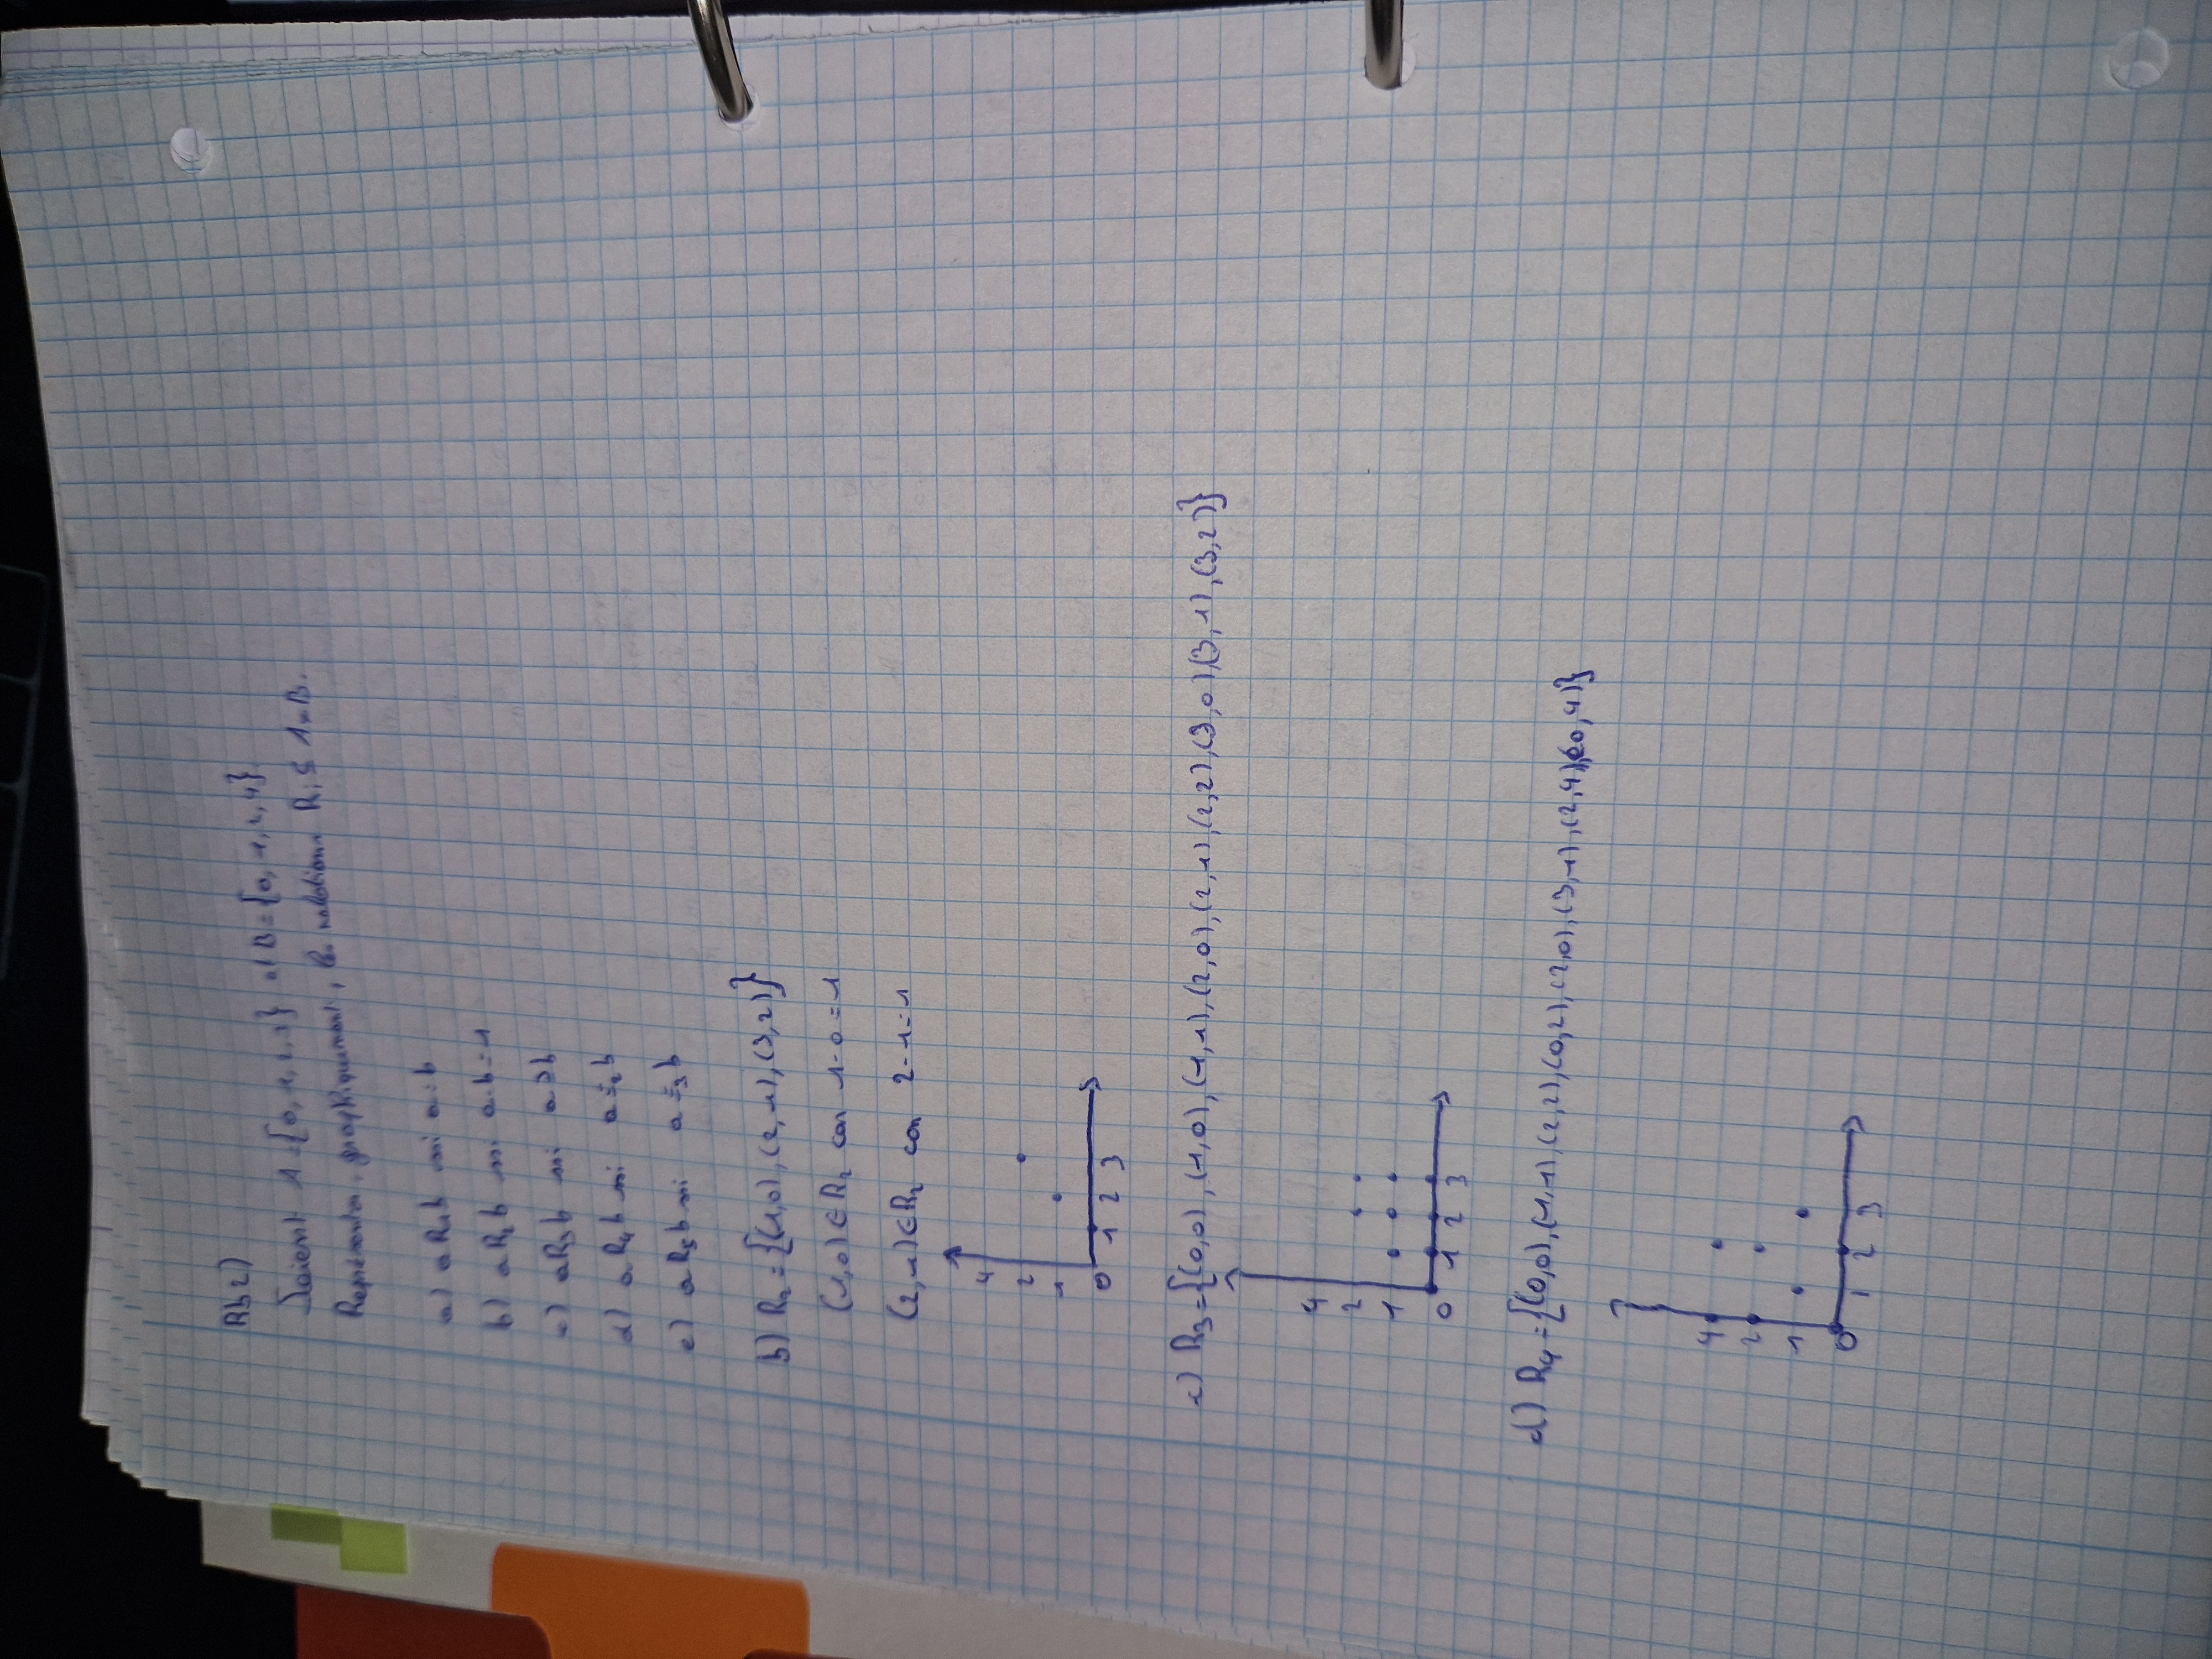 Rb 2)
Soient A = {0, 1, 2, 3} et B = {0, 1, 2, 4}.
Représenter, graphiquement, les relations Ri ⊆ A×B.
a) a R₁ b ssi a = b
b) a R₂ b ssi a - b = 1
c) a R₃ b ssi a ≥ b
d) a R₄ b ssi a ≡₂ b
e) a R₅ b ssi a ≡₃ b
b) R₂ = {(1,0), (2,1), (3,2)}
(1,0) ∈ R₂ car 1 - 0 = 1
(2,1) ∈ R₂ car 2 - 1 = 1
4
2
1
0 1 2 3
c) R₃ = {(0,0), (1,0), (1,1), (2,0), (2,1), (2,2), (3,0), (3,1), (3,2)}
4
2
1
0 1 2 3
d) R₄ = {(0,0), (1,1), (2,2), (0,2), (2,0), (3,1), (2,4), (0,4)}
4
2
1
0 1 2 3